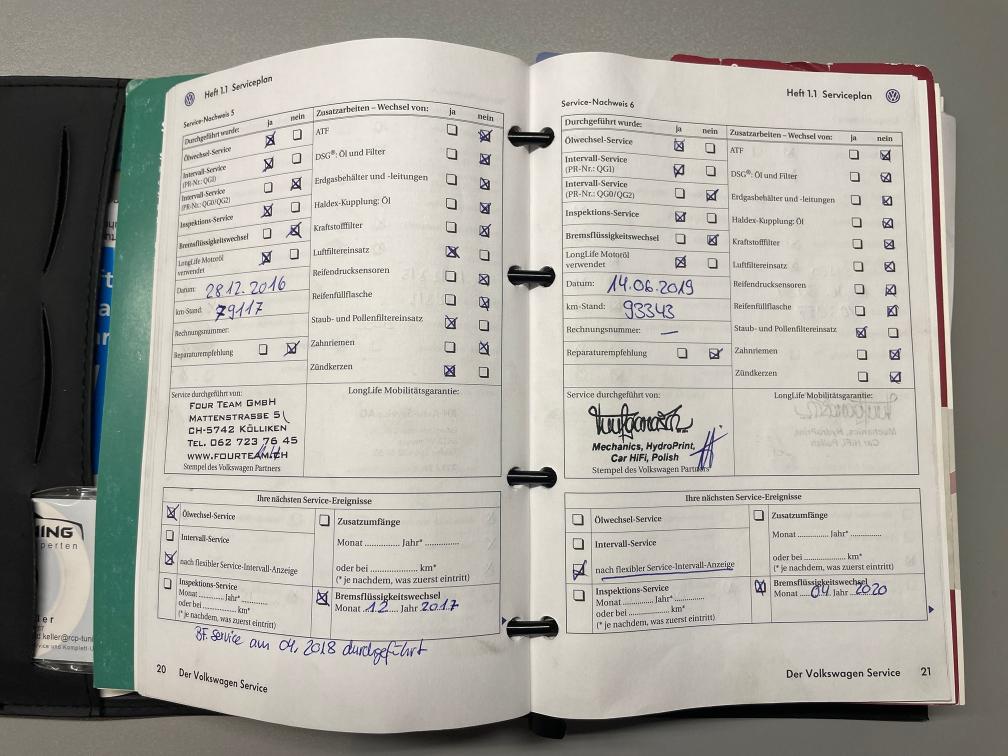 Heft 1.1 Serviceplan
Service-Nachweis 5
Durchgeführt wurde: ja nein
Ölwechsel-Service
Intervall-Service
(PR-Nr.: QG1)
Intervall-Service
(PR-Nr.: QG0/QG2)
Inspektions-Service
Bremsflüssigkeitswechsel
LongLife Motoröl
verwendet
Datum: 28.12.2016
km-Stand: 79117
Rechnungsnummer:
Reparaturempfehlung
Zusatzarbeiten – Wechsel von: ja nein
ATF
DSG®: Öl und Filter
Erdgasbehälter und -leitungen
Haldex-Kupplung: Öl
Kraftstofffilter
Luftfiltereinsatz
Reifendrucksensoren
Reifenfüllflasche
Staub- und Pollenfiltereinsatz
Zahnriemen
Zündkerzen
Service durchgeführt von:
FOUR TEAM GMBH
MATTENSTRASSE 5
CH-5742 KÖLLIKEN
TEL. 062 723 76 45
WWW.FOURTEAM.CH
Stempel des Volkswagen Partners
LongLife Mobilitätsgarantie:
Ihre nächsten Service-Ereignisse
Ölwechsel-Service
Intervall-Service
nach flexibler Service-Intervall-Anzeige
Inspektions-Service
Monat ............ Jahr* ............
oder bei ............ km*
(* je nachdem, was zuerst eintritt)
Zusatzumfänge
Monat ............ Jahr* ............
oder bei ............ km*
(* je nachdem, was zuerst eintritt)
Bremsflüssigkeitswechsel
Monat 12 Jahr 2017
BF. Service am 04.2018 durchgeführt
20 Der Volkswagen Service
Heft 1.1 Serviceplan
Service-Nachweis 6
Durchgeführt wurde: ja nein
Ölwechsel-Service
Intervall-Service
(PR-Nr.: QG1)
Intervall-Service
(PR-Nr.: QG0/QG2)
Inspektions-Service
Bremsflüssigkeitswechsel
LongLife Motoröl
verwendet
Datum: 14.06.2019
km-Stand: 93343
Rechnungsnummer: —
Reparaturempfehlung
Zusatzarbeiten – Wechsel von: ja nein
ATF
DSG®: Öl und Filter
Erdgasbehälter und -leitungen
Haldex-Kupplung: Öl
Kraftstofffilter
Luftfiltereinsatz
Reifendrucksensoren
Reifenfüllflasche
Staub- und Pollenfiltereinsatz
Zahnriemen
Zündkerzen
Service durchgeführt von:
Mechanics, HydroPrint,
Car HiFi, Polish
Stempel des Volkswagen Partners
LongLife Mobilitätsgarantie:
Ihre nächsten Service-Ereignisse
Ölwechsel-Service
Intervall-Service
nach flexibler Service-Intervall-Anzeige
Inspektions-Service
Monat ............ Jahr* ............
oder bei ............ km*
(* je nachdem, was zuerst eintritt)
Zusatzumfänge
Monat ............ Jahr* ............
oder bei ............ km*
(* je nachdem, was zuerst eintritt)
Bremsflüssigkeitswechsel
Monat 04 Jahr 2020
Der Volkswagen Service 21